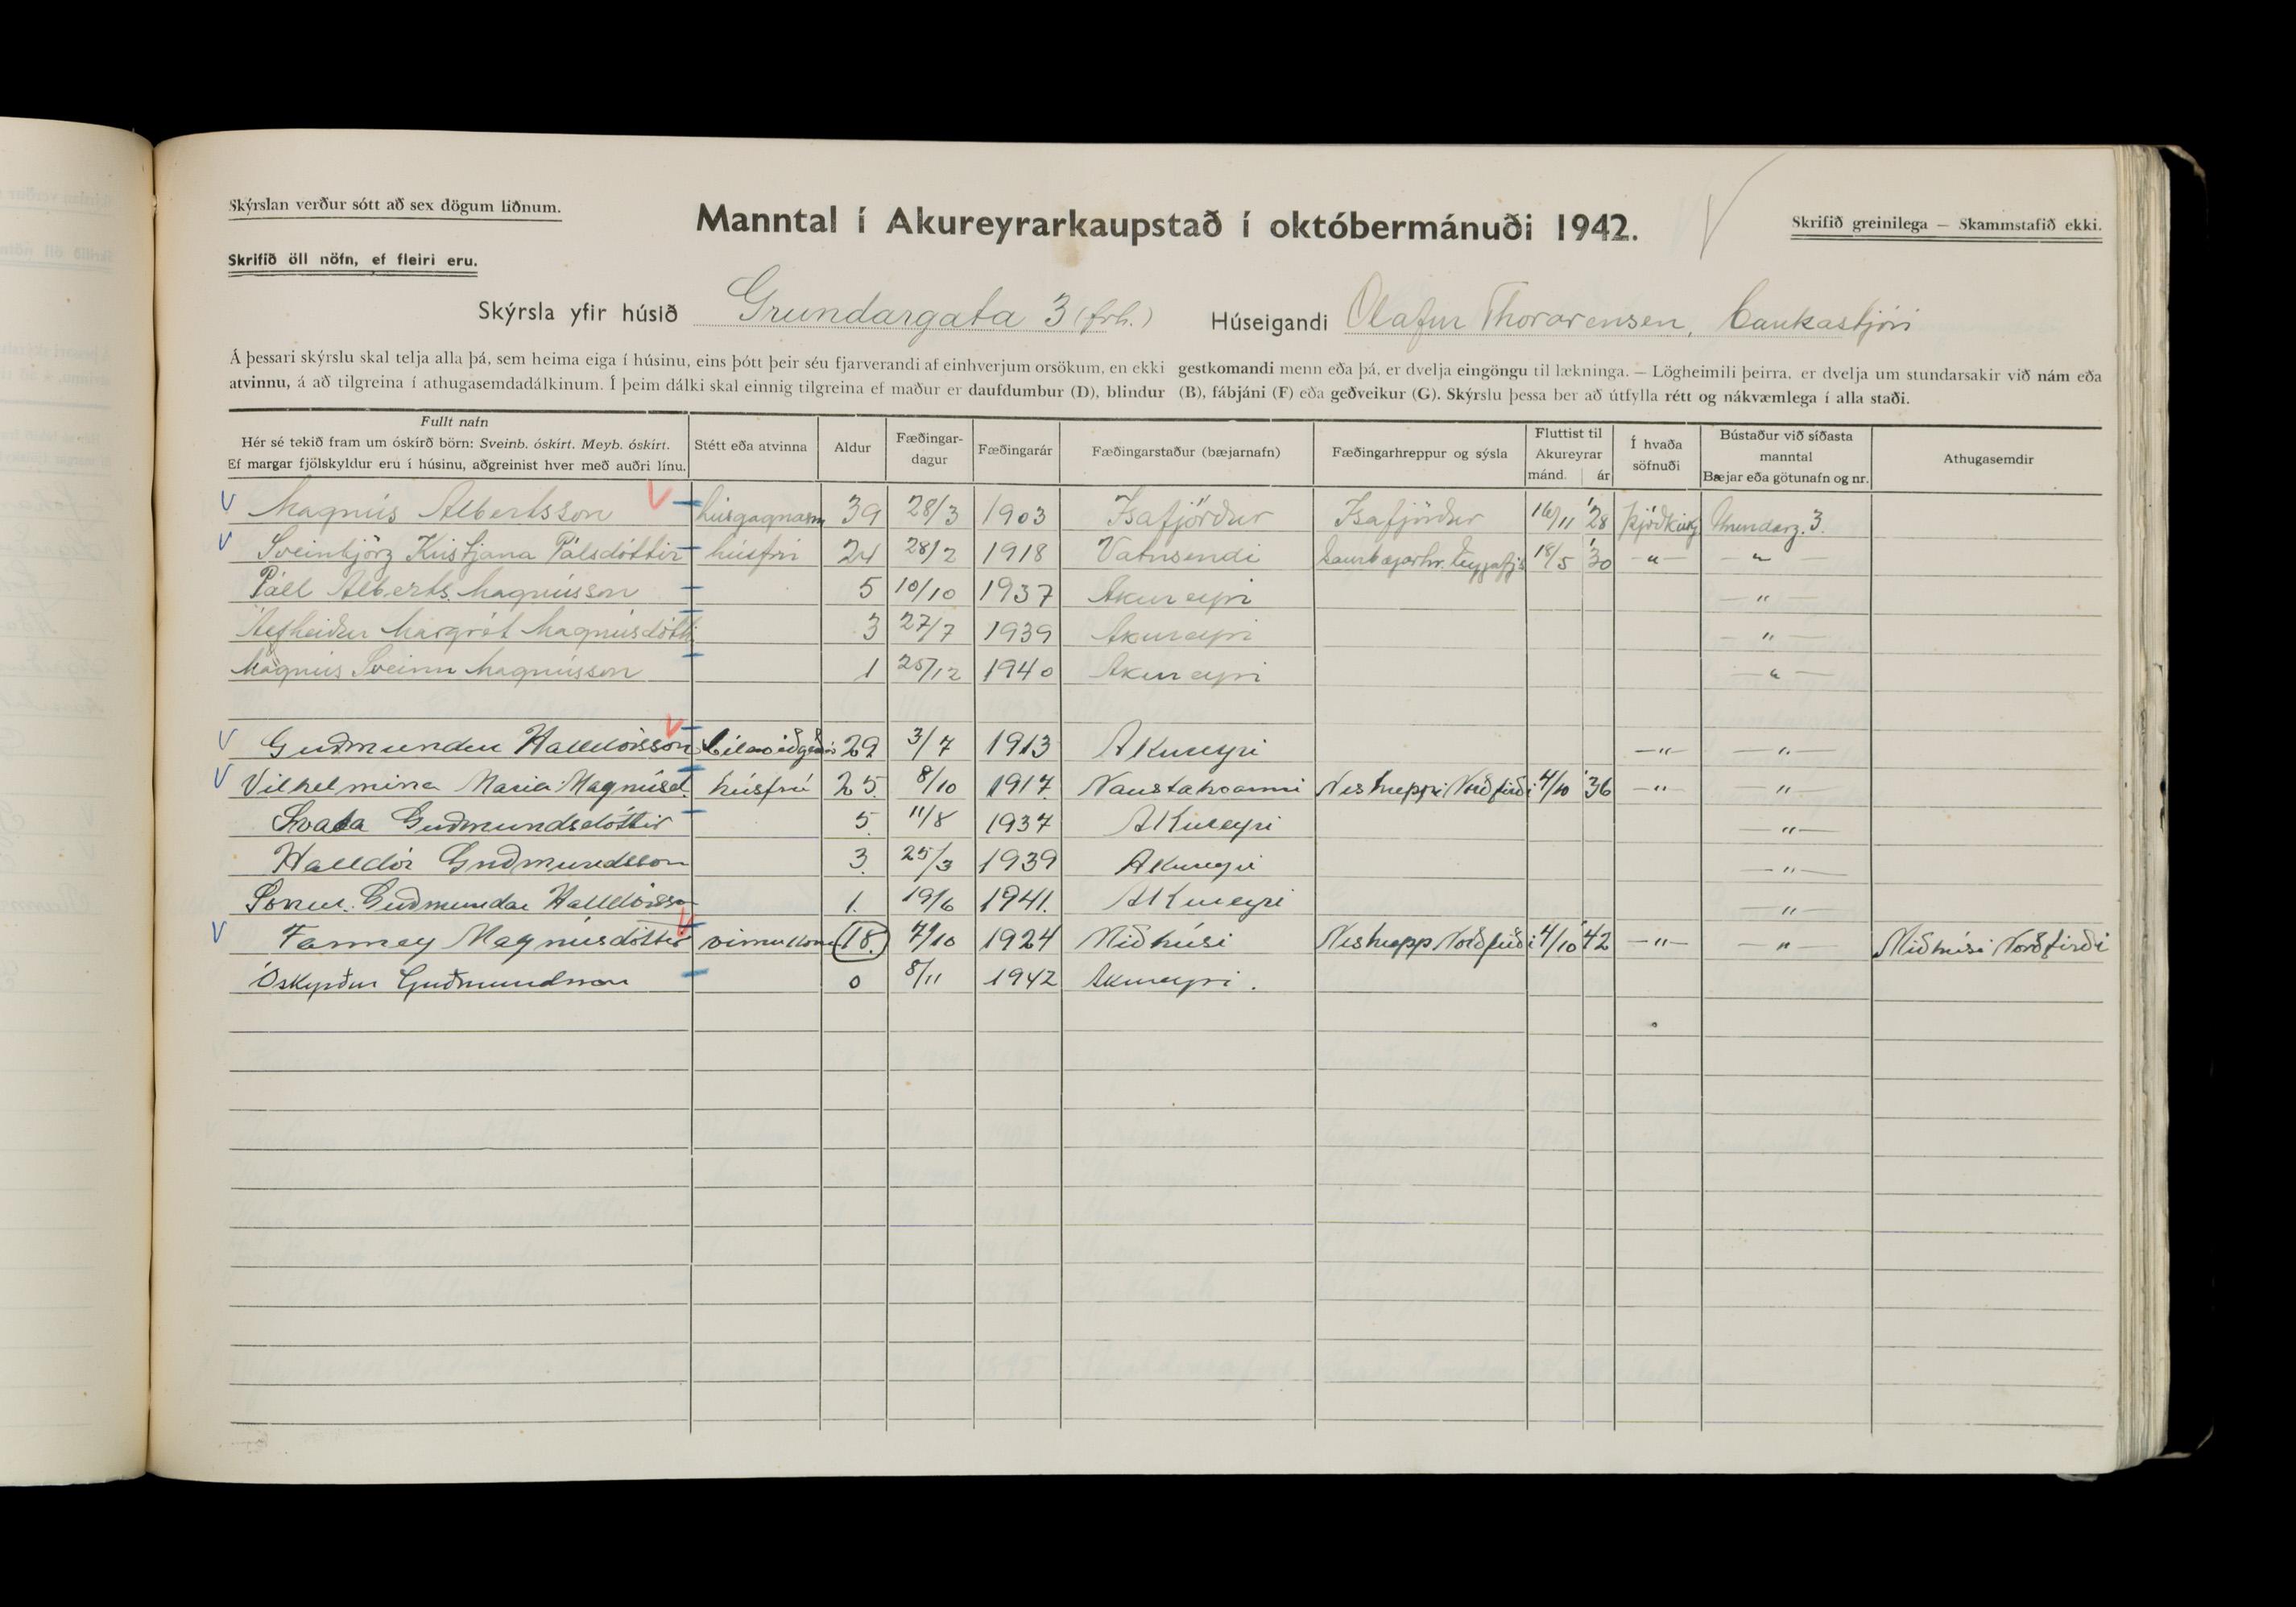 Skýrslan verður sótt að sex dögum liðnum.
Manntal í Akureyrarkaupstað í októbermánuði 1942.
Skrifið greinilega — Skammstafið ekki.
Skrifið öll nöfn, ef fleiri eru.
Skýrsla yfir húsið Grundargata 3 (frh.) Húseigandi Olafur Thorarensen, bankastjóri
Á þessari skýrslu skal telja alla þá, sem heima eiga í húsinu, eins þótt þeir séu fjarverandi af einhverjum orsökum, en ekki gestkomandi menn eða þá, er dvelja eingöngu til lækninga. — Lögheimili þeirra, er dvelja um stundarsakir við nám eða
atvinnu, á að tilgreina í athugasemdadálkinum. Í þeim dálki skal einnig tilgreina ef maður er daufdumbur (D), blindur (B), fábjáni (F) eða geðveikur (G). Skýrslu þessa ber að útfylla rétt og nákvæmlega í alla staði.
Fullt nafn
Hér sé tekið fram um óskírð börn: Sveinb. óskírt. Meyb. óskírt.
Ef margar fjölskyldur eru í húsinu, aðgreinist hver með auðri línu.
Stétt eða atvinna
Aldur
Fæðingar-
dagur
Fæðingarár
Fæðingarstaður (bæjarnafn)
Fæðingarhreppur og sýsla
Fluttist til
Akureyrar
mánd. ár
Í hvaða
söfnuði
Bústaður við síðasta
manntal
Bæjar eða götunafn og nr.
Athugasemdir
V Magnús Albertsson V húsgagnasm 39 28/3 1903 Ísafjörður Ísafjörður 16/11 '28 Þjóðkirkj Grundarg. 3.
V Sveinbjörg Kristjana Pálsdóttir húsfrú 24 28/2 1918 Vatnsendi Saurbæjarhr. Eyjafjs 18/5 '30 — " — — " —
Páll Alberts Magnússon 5 10/10 1937 Akureyri — " —
Margrét Magnúsdóttir 3 27/7 1939 Akureyri — " —
Magnús Sveinn Magnússon 1 25/12 1940 Akureyri — " —
V Guðmundur Halldórsson V bílaviðgerðir 29 3/7 1913 Akureyri — " — — " —
V Vilhelmina Maria Magnúsd húsfrú 25. 8/10 1917. Naustahvammi Neshreppi Norðfirði 4/10 '36 — " — — " —
Svala Guðmundsdóttir 5. 11/8 1937 Akureyri — " —
Halldór Guðmundsson 3. 25/3 1939 Akureyri — " —
Sonur. Guðmundar Halldórsson 1. 19/6 1941. Akureyri — " —
V Fanney Magnúsdóttir V vinnukona 18. 4/10 1924 Miðhúsi Neshrepp Norðfirði 4/10 '42 — " — — " — Miðhúsi Norðfirði
Óskýrður Guðmundsson 0 8/11 1942 Akureyri.